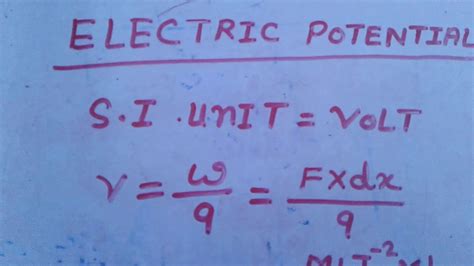 ELECTRIC POTENTIAL
S.I. UNIT = VOLT
V = W/q = FXdx/q